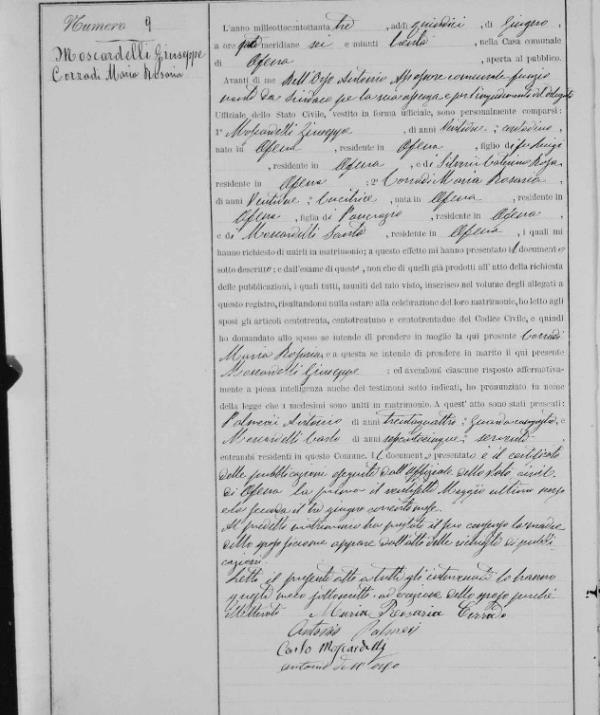 Numero 9
Moscardelli Giuseppe
Corradi Maria Rosaria
L'anno milleottocentottanta tre, addì quindici, di Giugno,
a ore meridiane sei e minuti trenta, nella Casa comunale
di Ofena, aperta al pubblico.
Avanti di me Dell'Orso Antonio Assessore comunale funzio
nante da Sindaco per la sua assenza e per impedimento del delegato
Uffiziale dello Stato Civile, vestito in forma ufficiale, sono personalmente comparsi:
1° Moscardelli Giuseppe, di anni ventuno, contadino,
nato in Ofena, residente in Ofena, figlio di fu Luigi
, residente in Ofena, e di Silveri Caterina Rosa
residente in Ofena; 2° Corradi Maria Rosaria,
di anni Ventuno, Cucitrice, nata in Ofena, residente in
Ofena, figlia di Pancrazio, residente in Ofena
e di Moscardelli Santa, residente in Ofena, i quali mi
hanno richiesto di unirli in matrimonio; a questo effetto mi hanno presentato il documento
sotto descritto; e dall'esame di questo, non che di quelli già prodotti all'atto della richiesta
delle pubblicazioni, i quali tutti, muniti del mio visto, inserisco nel volume degli allegati a
questo registro, risultandomi nulla ostare alla celebrazione del loro matrimonio, ho letto agli
sposi gli articoli centotrenta, centotrentuno e centotrentadue del Codice Civile, e quindi
ho domandato allo sposo se intende di prendere in moglie la qui presente Corradi
Maria Rosaria, e a questa se intende di prendere in marito il qui presente
Moscardelli Giuseppe; ed avendomi ciascuno risposto affermativamente
a piena intelligenza anche dei testimoni sotto indicati, ho pronunziato in nome
della legge che i medesimi sono uniti in matrimonio. A quest'atto sono stati presenti:
Palmerii Antonio, di anni trentaquattro, Guardacampestre, e
Moscardelli Carlo, di anni sessantacinque, servente
entrambi residenti in questo Comune. Il documento presentato è il certificato
delle pubblicazioni eseguite dall'Uffiziale dello stato civile
di Ofena la prima il ventisette Maggio ultimo scorso
e la seconda il tre giugno corrente mese.
Al predetto matrimonio ha prestato il suo consenso la madre
dello sposo siccome appare dall'atto delle richieste di pubbli
cazioni.
Letto il presente atto a tutti gli intervenuti lo hanno
questi meco sottoscritto ad eccezione dello sposo perché
illetterato
Maria Rosaria Corrado
Antonio Palmerii
Carlo Moscardelli
Antonio Dell'Orso